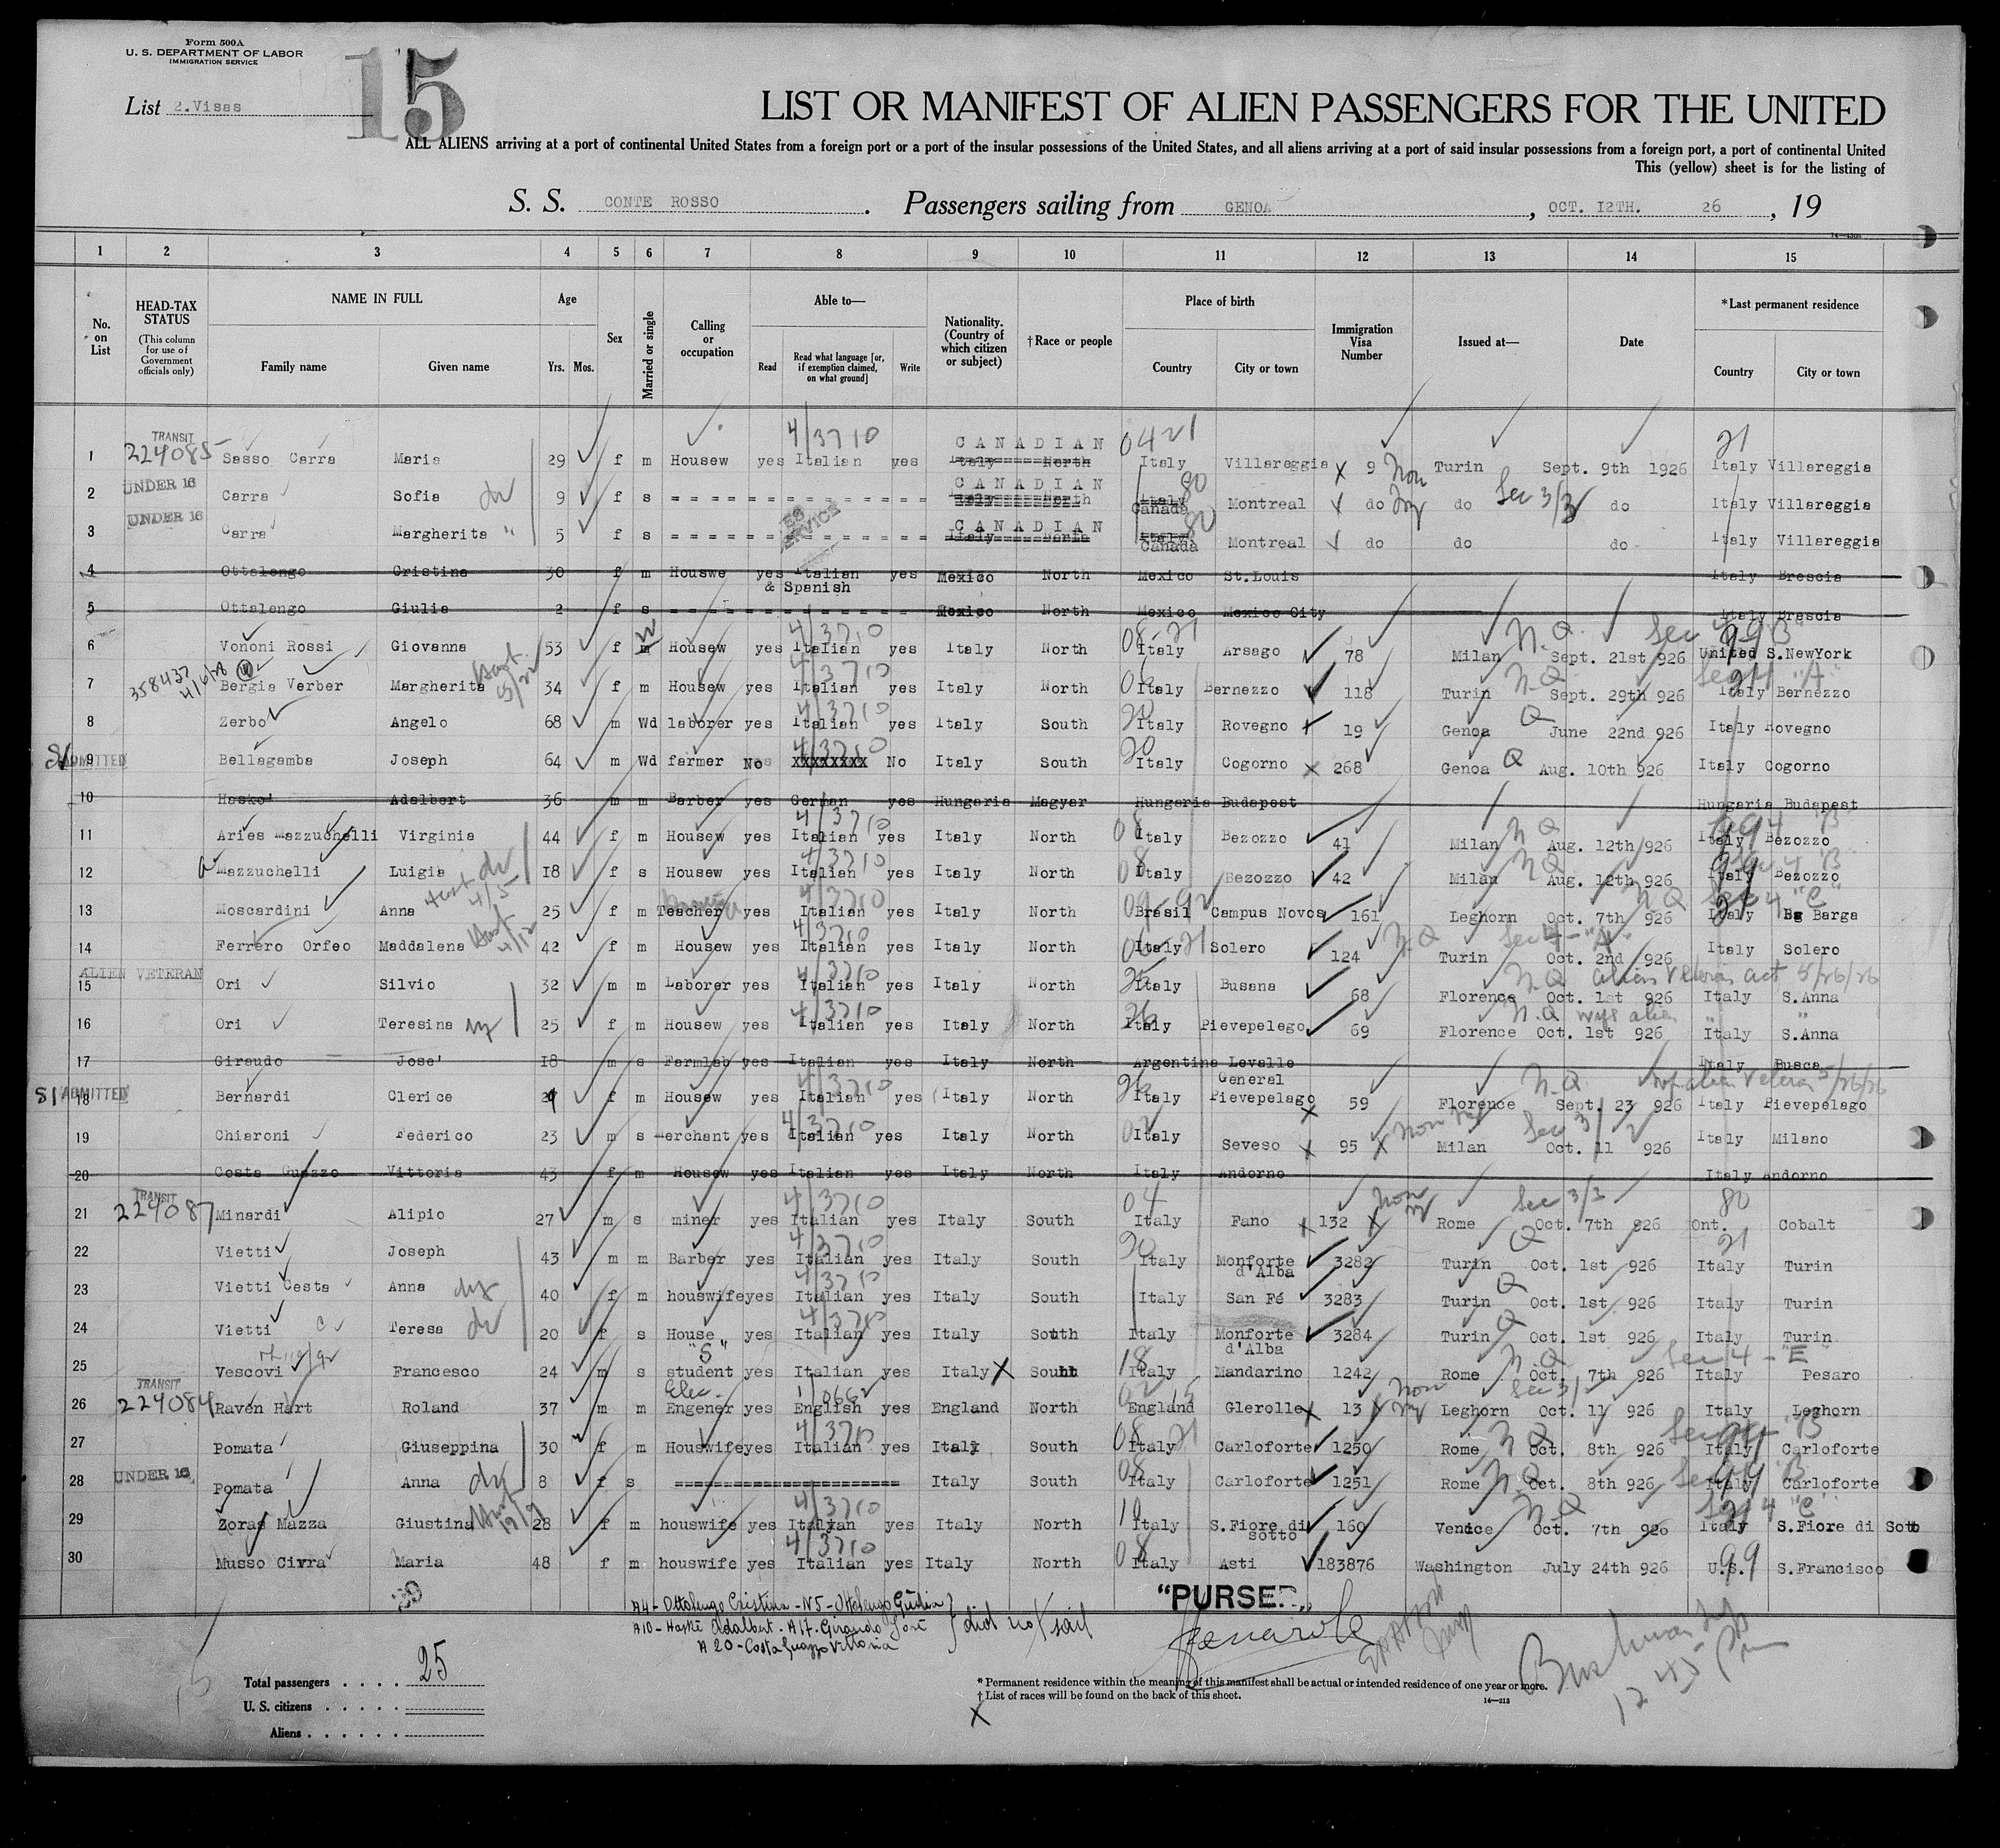 Form 500A
U. S. DEPARTMENT OF LABOR
IMMIGRATION SERVICE
List 2.Visas
15
LIST OR MANIFEST OF ALIEN PASSENGERS FOR THE UNITED
ALL ALIENS arriving at a port of continental United States from a foreign port or a port of the insular possessions of the United States, and all aliens arriving at a port of said insular possessions from a foreign port, a port of continental United
This (yellow) sheet is for the listing of
S. S. CONTE ROSSO . Passengers sailing from GENOA , OCT. I2TH. 26 , 19
1 2 3 4 5 6 7 8 9 10 11 12 13 14 15
No. on List HEAD-TAX STATUS (This column for use of Government officials only) NAME IN FULL Family name Given name Age Yrs. Mos. Sex Married or single Calling or occupation Able to— Read Read what language [or, if exemption claimed, on what ground] Write Nationality. (Country of which citizen or subject) †Race or people Place of birth Country City or town Immigration Visa Number Issued at— Date *Last permanent residence Country City or town
1 TRANSIT 224085 Sasso Carra Maria 29 f m Housew yes Italian yes CANADIAN Italy North Italy Villareggia 9 Turin Sept. 9th 1926 Italy Villareggia
2 UNDER 16 Carra Sofia 9 f s CANADIAN Italy North Italy Canada Montreal do do Sec 3/3 do Italy Villareggia
3 UNDER 16 Carra Margherita " 5 f s CANADIAN Italy North Italy Canada Montreal do do do Italy Villareggia
4 Ottolengo Cristina 30 f m Houswe yes Italian & Spanish yes Mexico North Mexico St.Louis Italy Brescia
5 Ottolengo Giulia 2 f s Mexico North Mexico Mexico City Italy Brescia
6 Vononi Rossi Giovanna 53 f m Housew yes Italian yes Italy North Italy Arsago 78 Milan N.Q. Sept. 21st 926 United S.NewYork
7 358437 4/6/28 Bergia Verber Margherita 34 f m Housew yes Italian yes Italy North Italy Bernezzo 118 Turin N.Q. Sept. 29th 926 Italy Bernezzo
8 Zerbo Angelo 68 m Wd laborer yes Italian yes Italy South Italy Rovegno 19 Genoa Q June 22nd 926 Italy Rovegno
9 ADMITTED Bellagamba Joseph 64 m Wd farmer No XXXXXXXX No Italy South Italy Cogorno 268 Genoa Q Aug. 10th 926 Italy Cogorno
10 Adalbert 36 m m Barber yes German yes Hungaria Magyar Hungaria Budapest Hungaria Budapest
11 Aries Mazzuchelli Virginia 44 f m Housew yes Italian yes Italy North Italy Bezozzo 41 Milan N.Q Aug. 12th 926 Italy Bezozzo
12 Mazzuchelli Luigia I8 f s Housew yes Italian yes Italy North Italy Bezozzo 42 Milan N.Q Aug. 12th 926 Italy Bezozzo
13 Moscardini Anna 25 f m Teacher yes Italian yes Italy North Brasil Campus Novos 161 Leghorn Oct. 7th 926 Italy Barga
14 Ferrero Orfeo Maddalena 42 f m Housew yes Italian yes Italy North Italy Solero 124 N.Q Turin Oct. 2nd 926 Italy Solero
15 ALIEN VETERAN Ori Silvio 32 m m Laborer yes Italian yes Italy North Italy Busana 68 Florence N.Q alien Veteran act 5/26/26 Oct. 1st 926 Italy S.Anna
16 Ori Teresina 25 f m Housew yes Italian yes Italy North Italy Pievepelego 69 Florence N.Q Oct. 1st 926 Italy S.Anna
17 Giraudo Jose' I8 m s Farmlab yes Italian yes Italy North Argentina Levalle General Italy Busca
18 SI ADMITTED Bernardi Clerice f m Housew yes Italian yes Italy North Italy Pievepelago 59 Florence N.Q. Sept. 23 926 Italy Pievepelago
19 Chiaroni Federico 23 m s merchant yes Italian yes Italy North Italy Seveso 95 Milan Oct. 11 926 Italy Milano
20 Costa Guazzo Vittoria 43 f m Housew yes Italian yes Italy North Italy Andorno Italy Andorno
21 TRANSIT 224087 Minardi Alipio 27 m s miner yes Italian yes Italy South Italy Fano 132 Rome Sec 3/3 Oct. 7th 926 Ont. Cobalt
22 Vietti Joseph 43 m m Barber yes Italian yes Italy South Italy Monforte d'Alba 3282 Turin Q Oct. 1st 926 Italy Turin
23 Vietti Costa Anna 40 f m houswife yes Italian yes Italy South Italy San Fé 3283 Turin Q Oct. 1st 926 Italy Turin
24 Vietti Teresa 20 f s House " yes Italian yes Italy South Italy Monforte d'Alba 3284 Turin Q Oct. 1st 926 Italy Turin
25 Vescovi Francesco 24 m s "S" student yes Italian yes Italy South Italy Mandarino 1242 Rome N.Q Oct. 7th 926 Sec 4 - "E" Italy Pesaro
26 TRANSIT 224084 Raven Hart Roland 37 m m Elec. Engener yes English yes England North England Glerolle 13 Leghorn Oct. 11 926 Italy Leghorn
27 Pomata Giuseppina 30 f m Houswife yes Italian yes Italy South Italy Carloforte 1250 Rome NQ Oct. 8th 926 Italy Carloforte
28 UNDER 16 Pomata Anna 8 f s Italy South Italy Carloforte 1251 Rome N.Q Oct. 8th 926 Italy Carloforte
29 Zoras Mazza Giustina 28 f m houswife yes Italian yes Italy North Italy S.Fiore di sotto 160 Venice N.Q Oct. 7th 926 Italy S.Fiore di Sott
30 Musso Civra Maria 48 f m houswife yes Italian yes Italy North Italy Asti 183876 Washington July 24th 926 U.S. S.Francisco
"PURSER"
A4 - Ottolengo Cristina - N5 - Ottolengo Giulia
A10 - Adalbert - A17. Giraudo José } did not sail
A 20 - Costa Guazzo Vittoria
Total passengers . . . . 25
U. S. citizens . . . . .
Aliens . . . . . .
* Permanent residence within the meaning of this manifest shall be actual or intended residence of one year or more.
† List of races will be found on the back of this sheet.
14—213